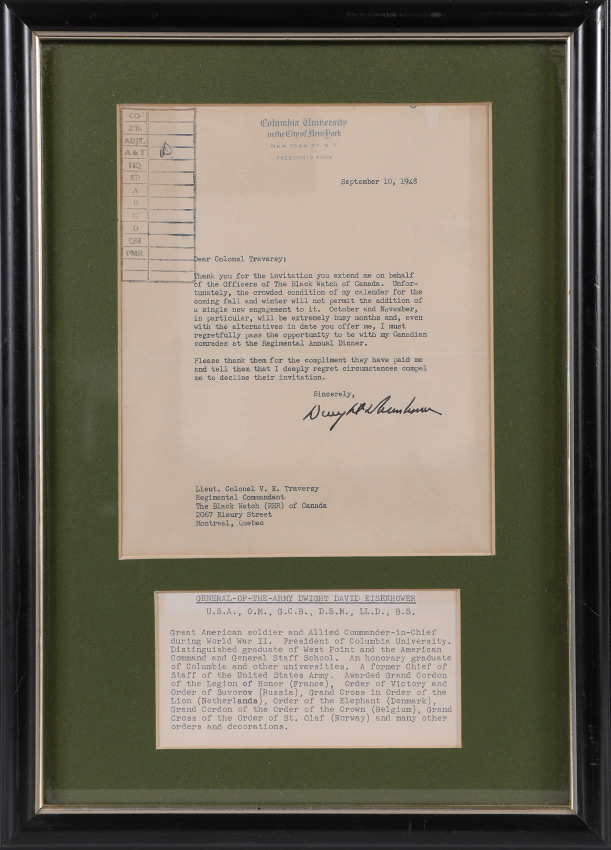 CO
2ic
ADJT.
A & T
HQ
SP
A
B
C
D
QM
PMR
Columbia University
in the City of New York
NEW YORK 27, N. Y.
PRESIDENT'S ROOM
September 10, 1948
Dear Colonel Traversy:
Thank you for the invitation you extend me on behalf
of the Officers of The Black Watch of Canada. Unfor-
tunately, the crowded condition of my calendar for the
coming fall and winter will not permit the addition of
a single new engagement to it. October and November,
in particular, will be extremely busy months and, even
with the alternatives in date you offer me, I must
regretfully pass the opportunity to be with my Canadian
comrades at the Regimental Annual Dinner.
Please thank them for the compliment they have paid me
and tell them that I deeply regret circumstances compel
me to decline their invitation.
Sincerely,
Dwight D Eisenhower
Lieut. Colonel V. E. Traversy
Regimental Commandant
The Black Watch (RHR) of Canada
2067 Bleury Street
Montreal, Quebec
GENERAL-OF-THE-ARMY DWIGHT DAVID EISENHOWER
U.S.A., O.M., G.C.B., D.S.M., LL.D., B.S.
Great American soldier and Allied Commander-in-Chief
during World War II. President of Columbia University.
Distinguished graduate of West Point and the American
Command and General Staff School. An honorary graduate
of Columbia and other universities. A former Chief of
Staff of the United States Army. Awarded Grand Cordon
of the Legion of Honor (France), Order of Victory and
Order of Suvorov (Russia), Grand Cross in Order of the
Lion (Netherlands), Order of the Elephant (Denmark),
Grand Cordon of the Order of the Crown (Belgium), Grand
Cross of the Order of St. Olaf (Norway) and many other
orders and decorations.